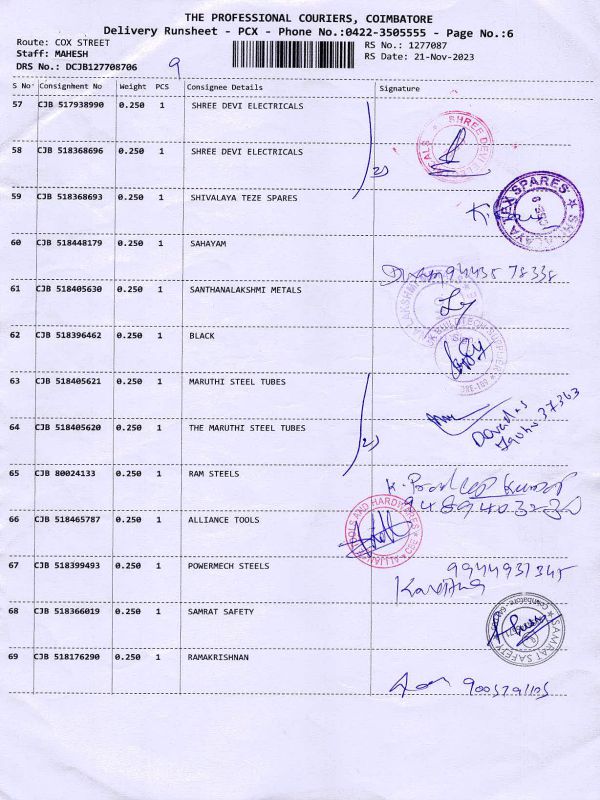 THE PROFESSIONAL COURIERS, COIMBATORE
Delivery Runsheet - PCX - Phone No.:0422-3505555 - Page No.:6
Route: COX STREET
RS No.: 1277087
Staff: MAHESH
RS Date: 21-Nov-2023
DRS No.: DCJB127708706
9
S No Consignment No Weight PCS Consignee Details Signature
57 CJB 517938990 0.250 1 SHREE DEVI ELECTRICALS
SHREE DEVI
58 CJB 518368696 0.250 1 SHREE DEVI ELECTRICALS
2)
59 CJB 518368693 0.250 1 SHIVALAYA TEZE SPARES
60 CJB 518448179 0.250 1 SAHAYAM
94435 78338
61 CJB 518405630 0.250 1 SANTHANALAKSHMI METALS
62 CJB 518396462 0.250 1 BLACK
63 CJB 518405621 0.250 1 MARUTHI STEEL TUBES
64 CJB 518405620 0.250 1 THE MARUTHI STEEL TUBES
2)
65 CJB 80024133 0.250 1 RAM STEELS
K. Pradeep Kumar
66 CJB 518465787 0.250 1 ALLIANCE TOOLS
TOOLS AND HARDWARES
67 CJB 518399493 0.250 1 POWERMECH STEELS
9944931345
68 CJB 518366019 0.250 1 SAMRAT SAFETY
SAMRAT SAFETY
69 CJB 518176290 0.250 1 RAMAKRISHNAN